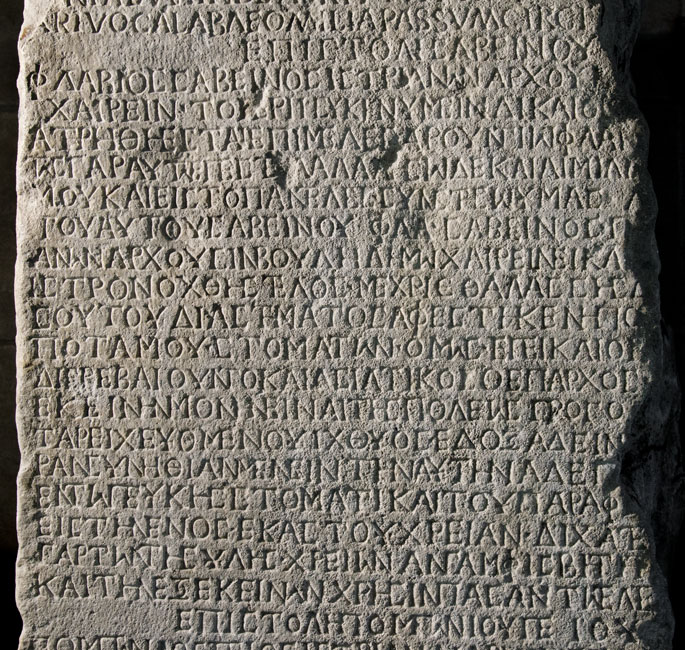 ARIVOCALABAEOMITIAPASSVMCIRC
ΕΠΙΣΤΟΛΗΣΑΒΕΙΝΟΥ
ΦΛΑΒΙΟΣΣΑΒΕΙΝΟΣΙΣΤΡΙΑΝΩΝΑΡΧΟΥ
ΧΑΙΡΕΙΝ·ΤΟΠΕΡΙΠΕΥΚΗΝΥΜΩΝΔΙΚΑΙΟ
ΑΤΗΡΗΘΗΕΣΤΑΙΕΠΙΜΕΛΕΣΑΡΟΥΝΤΙΩΦΛΑΜ
ΩΣΓΑΡΑΥΤΩΕΠΕΣΤΕΙΛΑΛΑΛΗΣΩΔΕΚΑΙΑΙΜΙΛΙΑ
ΜΟΥΚΑΙΕΙΣΤΟΠΑΝΤΕΛΕΣΣΥΝΣΤΗΣΩΥΜΑΣ
ΤΟΥΑΥΤΟΥΣΑΒΕΙΝΟΥ ΦΛΑΣΑΒΕΙΝΟΣΙΣ
ΑΝΩΝΑΡΧΟΥΣΙΝΒΟΥΛΗΔΗΜΩΧΑΙΡΕΙΝ·ΕΙΚΑΙ
ΙΣΤΡΟΝΟΧΘΗΣΤΕΛΟΣ·ΜΕΧΡΙΣΘΑΛΑΣΣΗΣΔ
ΣΟΥΤΟΥΔΙΑΣΤΗΜΑΤΟΣΑΦΕΣΤΗΚΕΝΗΠΟ
ΠΟΤΑΜΟΥΣΤΟΜΑΤΩΝ·ΟΜΩΣ·ΕΠΙΚΑΙΟΙ
ΔΙΕΒΕΒΑΙΟΥΝΤΟΚΑΙΑΣΙΑΤΙΚΟΣΟΕΠΑΡΧΟΣ
ΕΚΕΙΝΗΝΜΟΝΗΝΕΙΝΑΙΤΗΣΠΟΛΕΩΣΠΡΟΣΟ
ΤΑΡΕΙΧΕΥΟΜΕΝΟΥΙΧΘΥΟΣΕΔΟΞΑΔΕΙΝ
ΡΑΝΣΥΝΗΘΙΑΝΜΕΝΕΙΝΤΗΝΑΥΤΗΝΑΔΕΙ
ΕΝΤΩΠΕΥΚΗΣΣΤΟΜΑΤΙΚΑΙΤΟΥΠΑΡΑΦ
ΕΙΣΤΗΝΕΝΟΣΕΚΑΣΤΟΥΧΡΕΙΑΝ·ΔΙΧΑΤ
ΓΑΡΤΩΝΤΗΣΥΛΗΣΧΡΕΙΩΝΑΝΑΜΦΙΣΒΗΤ
ΚΑΙΤΗΝΕΞΕΚΕΙΝΩΝΧΡΗΣΙΝΠΑΣΑΝΤΩΤΕΛΕ
ΕΠΙΣΤΟΛΗΠΟΜΠΩΝΙΟΥΠΕΙΟΥ